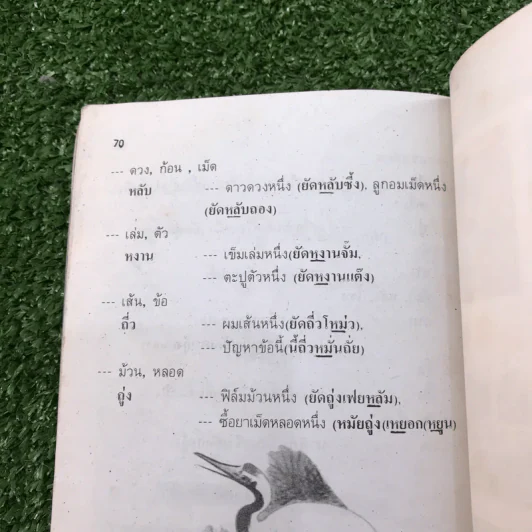 70
--- ดวง, ก้อน , เม็ด
หลับ --- ดาวดวงหนึ่ง (ยัดหลับซึ้ง), ลูกอมเม็ดหนึ่ง
(ยัดหลับถอง)
--- เล่ม, ตัว
หงาน --- เข็มเล่มหนึ่ง(ยัดหงานจั้ม,
--- ตะปูตัวหนึ่ง (ยัดหงานแต๊ง)
--- เส้น, ข้อ
ถี่ว --- ผมเส้นหนึ่ง(ยัดถี่วโหม่ว),
--- ปัญหาข้อนี้(นี้ถี่วหมั่นถั่ย)
--- ม้วน, หลอด
ถูง --- ฟิล์มม้วนหนึ่ง (ยัดถูงเฟยหลัม),
--- ซื้อยาเม็ดหลอดหนึ่ง (หมัยถูง(เหยอก(หยูน)